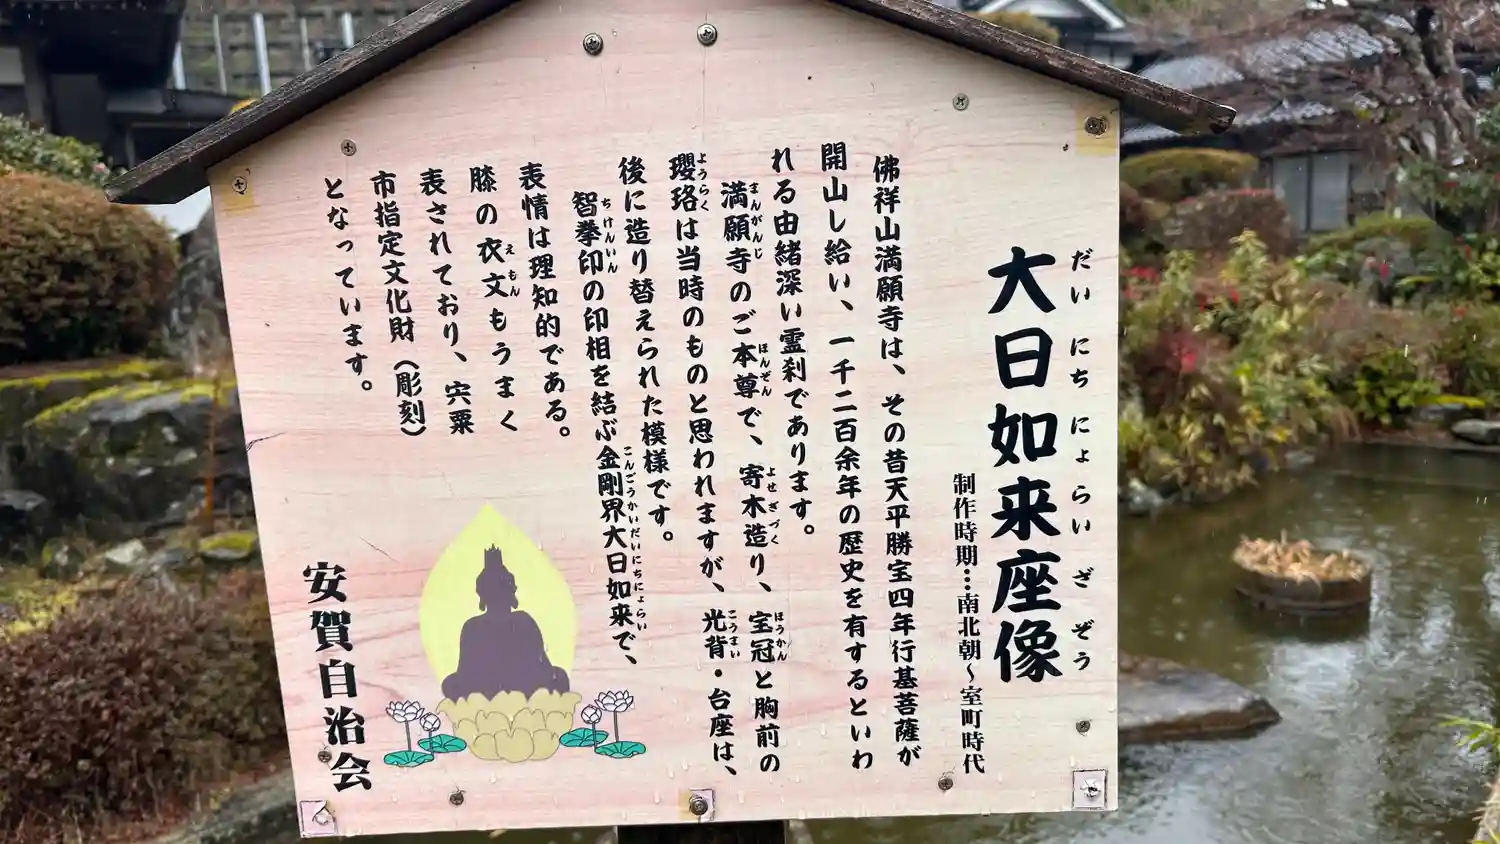 大日如来座像
だいにちにょらいざぞう
制作時期…南北朝～室町時代
佛祥山満願寺は、その昔天平勝宝四年行基菩薩が
開山し給い、一千二百余年の歴史を有するといわ
れる由緒深い霊刹であります。
満願寺のご本尊で、寄木造り、宝冠と胸前の
まんがんじ ほんぞん よせぎづく ほうかん
瓔珞は当時のものと思われますが、光背・台座は、
ようらく こうまい
後に造り替えられた模様です。
智拳印の印相を結ぶ金剛界大日如来で、
ちけんいん こんごうかいだいにちにょらい
表情は理知的である。
膝の衣文もうまく
えもん
表されており、宍粟
市指定文化財（彫刻）
となっています。
安賀自治会